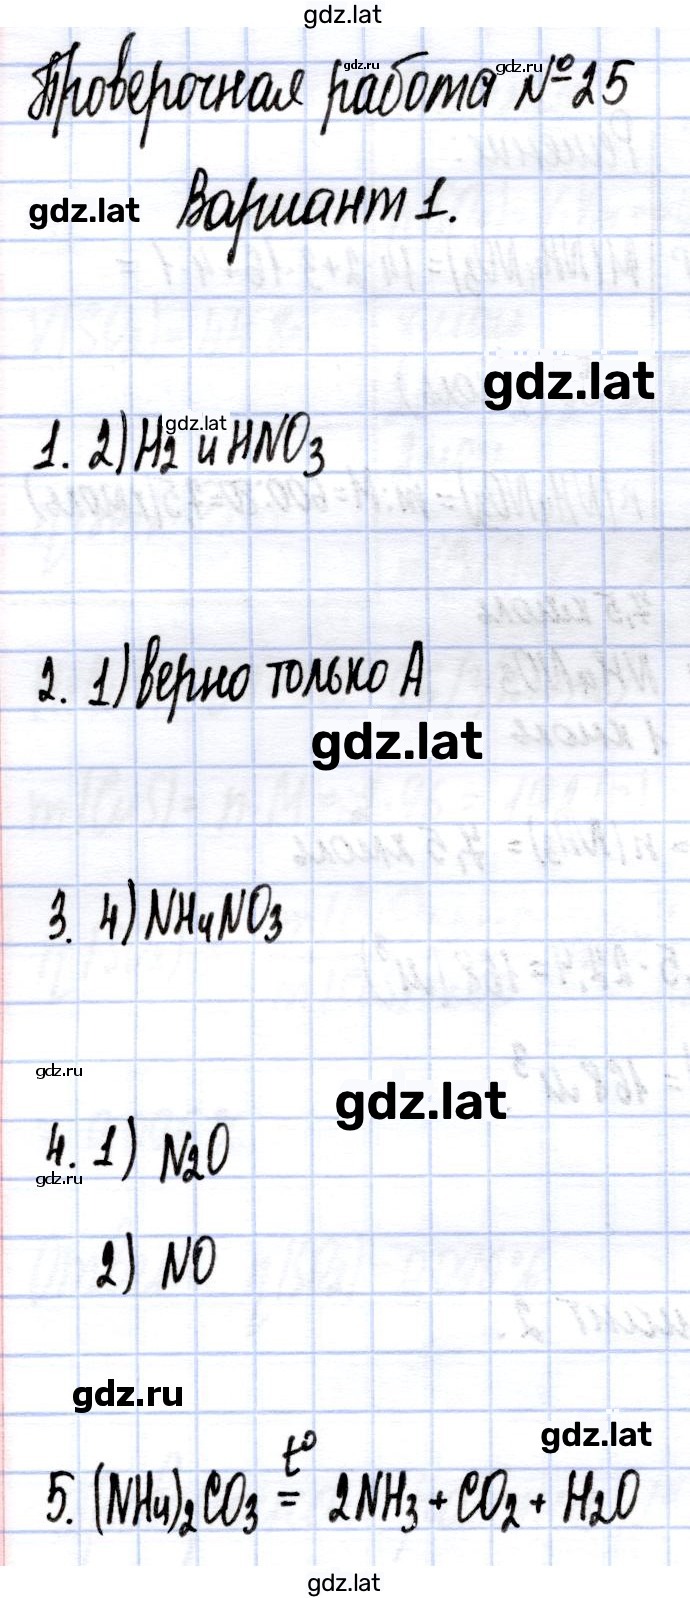 gdz.lat
Проверочная работа №25
gdz.ru
gdz.ru
gdz.lat
Вариант 1.
gdz.lat
gdz.lat
1. 2) H2 и HNO3
2. 1) верно только А
gdz.lat
3. 4) NH4NO3
gdz.ru
gdz.lat
4. 1) N2O
gdz.ru
2) NO
gdz.ru
gdz.lat
t°
5. (NH4)2CO3 = 2NH3 + CO2 + H2O
gdz.lat